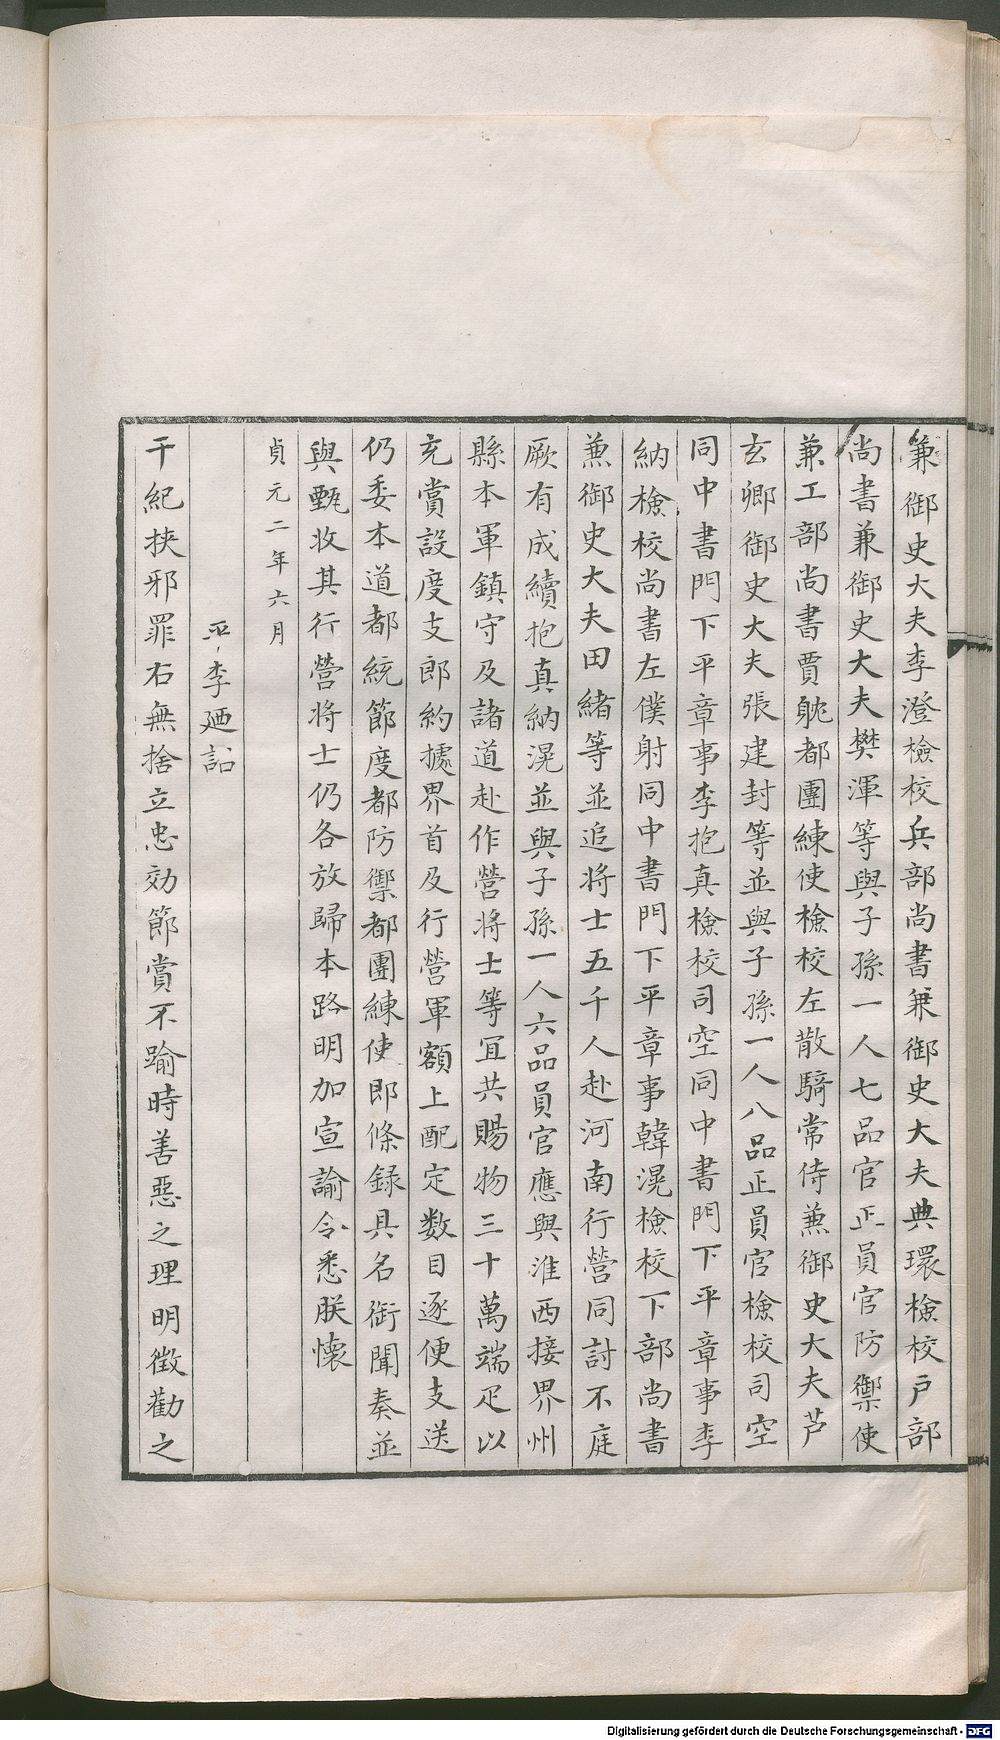 兼御史大夫李澄檢校兵部尚書兼御史大夫典環檢校户部
尚書兼御史大夫樊渾等與子孫一人七品官正員官防禦使
兼工部尚書賈躭都團練使檢校左散騎常侍兼御史大夫芦
玄卿御史大夫張建封等並與子孫一人八品正員官檢校司空
同中書門下平章事李抱真檢校司空同中書門下平章事李
納檢校尚書左僕射同中書門下平章事韓滉檢校下部尚書
兼御史大夫田緒等並追将士五千人赴河南行營同討不庭
厥有成績抱真納滉並與子孫一人六品員官應與淮西接界州
縣本軍鎮守及諸道赴作營将士等宜共賜物三十萬端疋以
充賞設度支郎約據界首及行營軍額上配定数目逐便支送
仍委本道都統節度都防禦都團練使即條録具名銜聞奏並
與甄收其行營将士仍各放歸本路明加宣諭令悉朕懷
貞元二年六月
平李廼詔
干紀挾邪罪右無捨立忠効節賞不踰時善惡之理明徵勸之
Digitalisierung gefördert durch die Deutsche Forschungsgemeinschaft - DFG